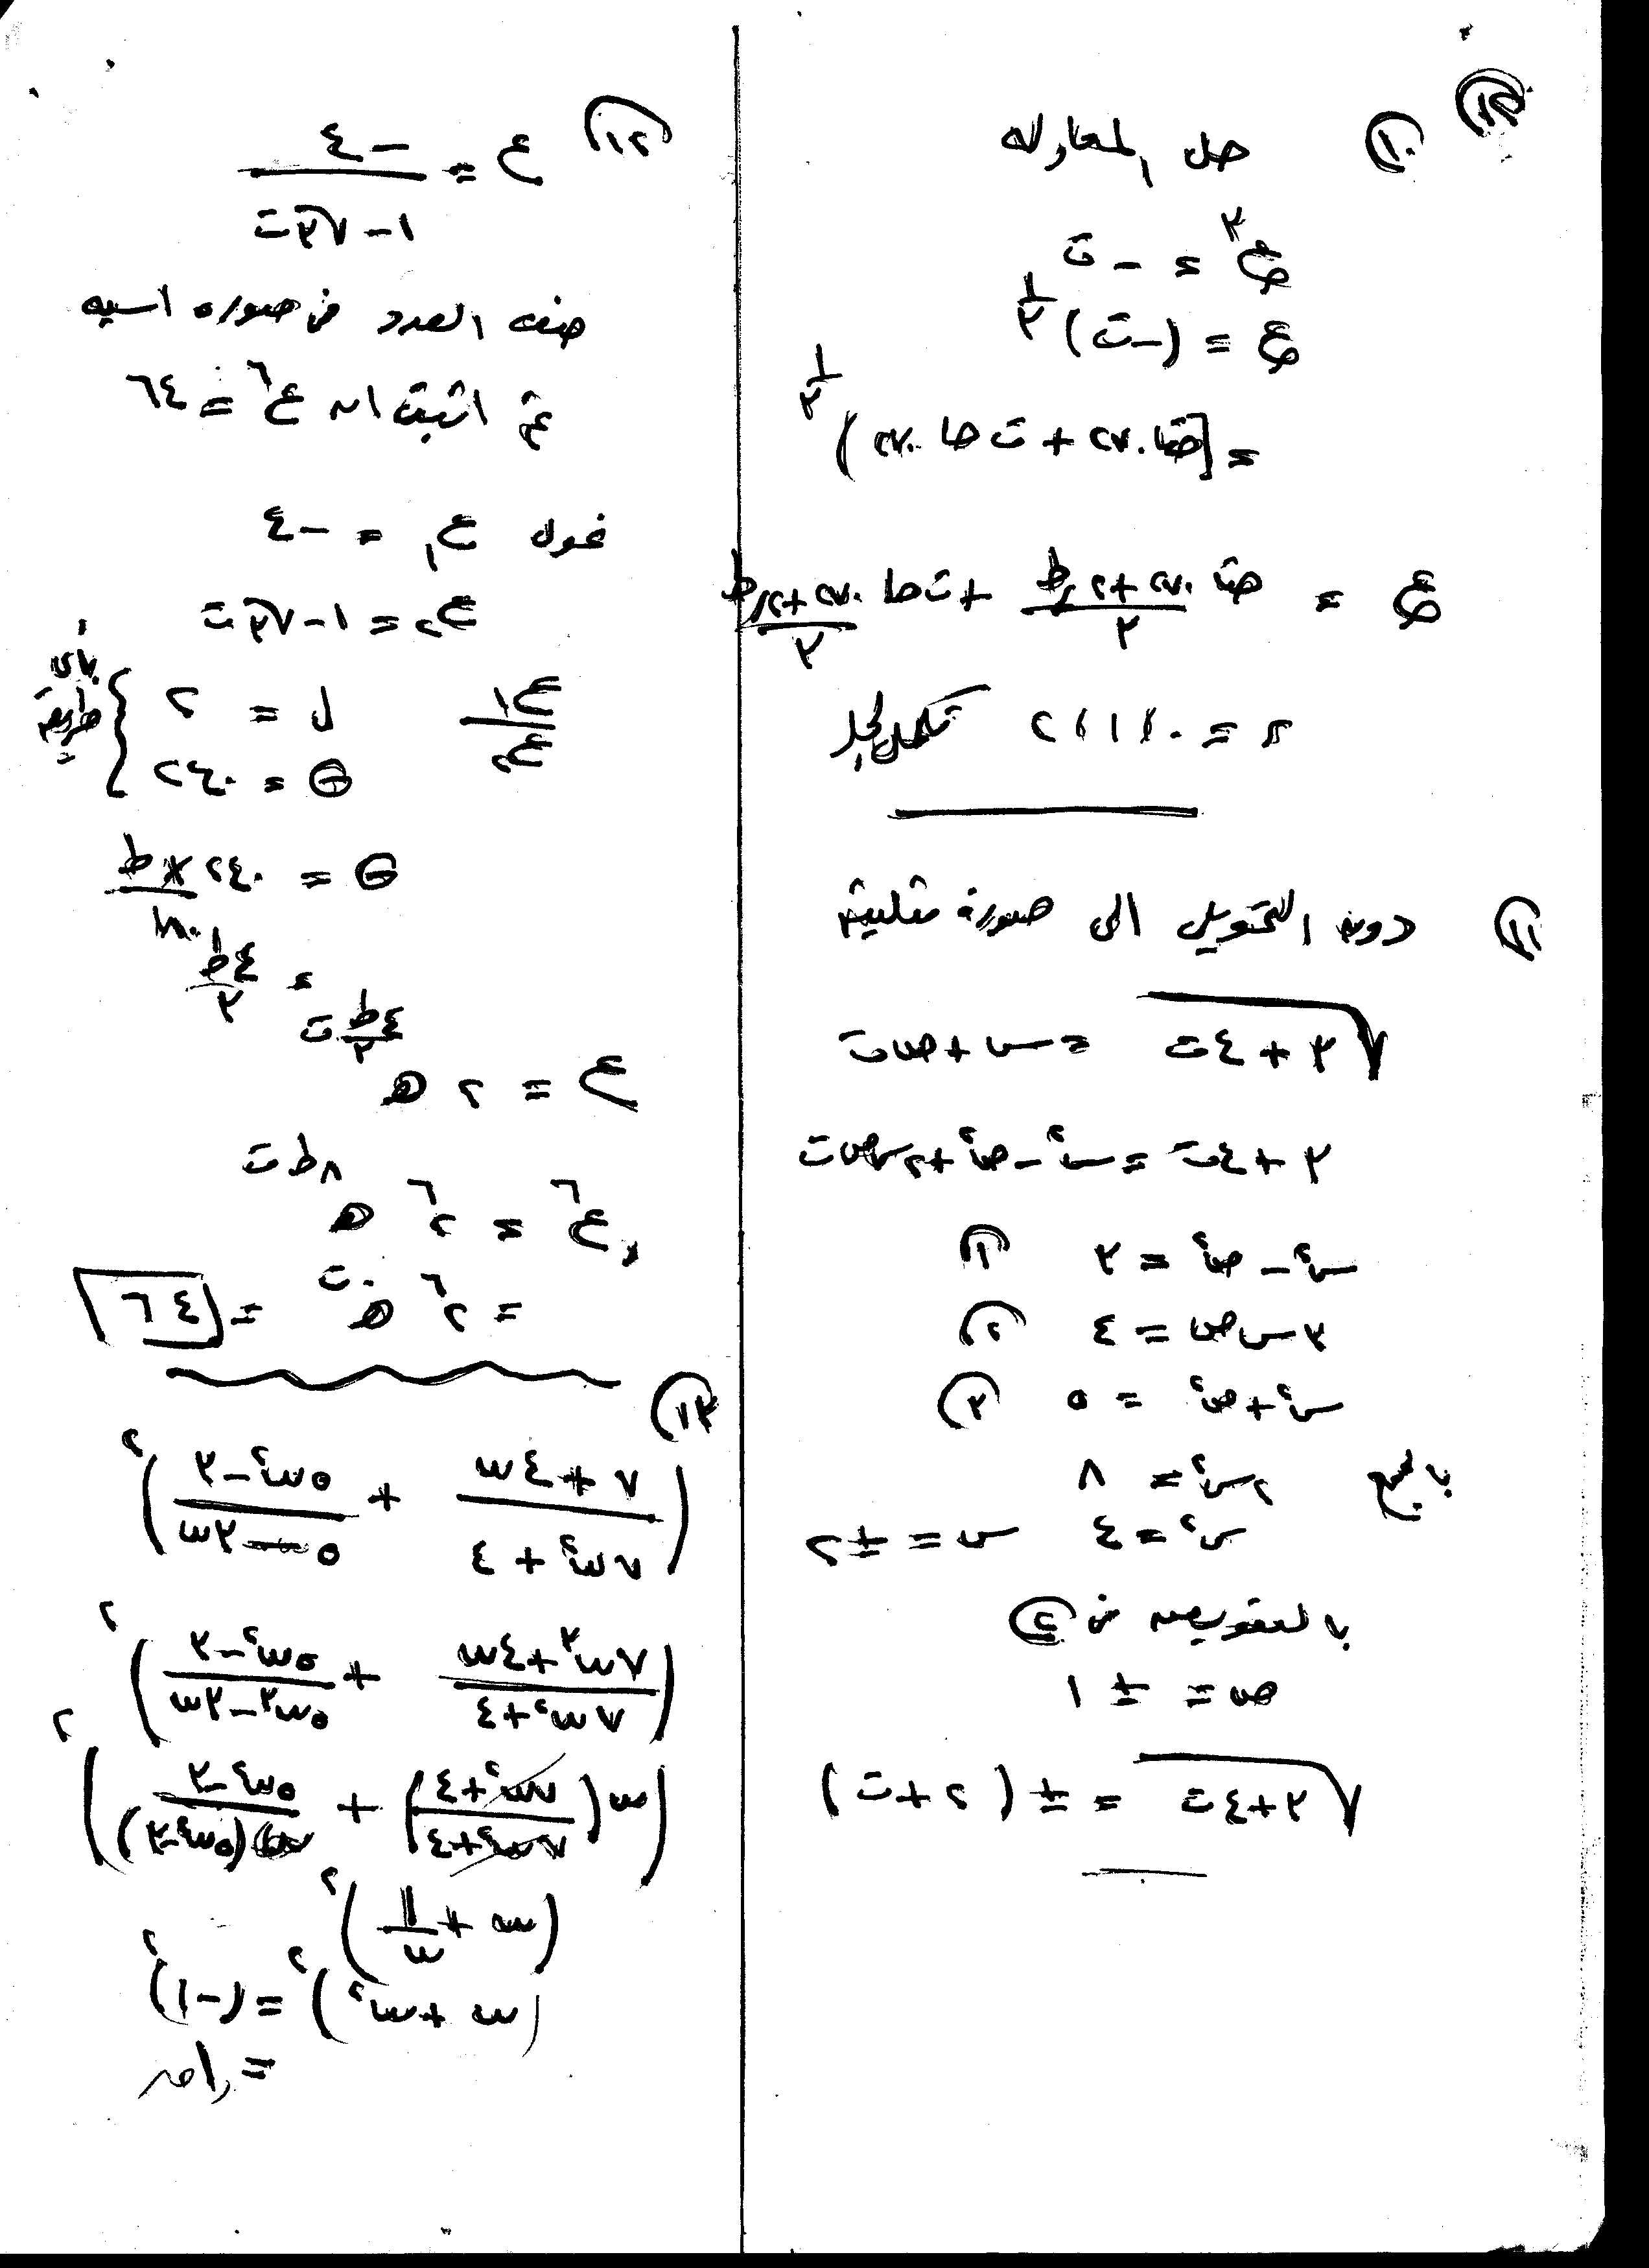 ١٠ حل المعادله
ع^٣ = - ت
ع = (-ت)^١/٣
= [حتا ٢٧٠ + ت حا ٢٧٠)^١/٣
ع = حتا (٢٧٠ + ٢ر ط)/٣ + ت حا (٢٧٠ + ٢ر ط)/٣
ر = ٠، ١، ٢ تكمل الحل
١١ دون التحويل الى صورة مثلثية
√(٣ + ٤ت) = س + ص ت
٣ + ٤ت = س^٢ - ص^٢ + ٢ س ص ت
س^٢ - ص^٢ = ٣ ①
٢ س ص = ٤ ②
س^٢ + ص^٢ = ٥ ③
بالجمع ٢س^٢ = ٨
س^٢ = ٤ س = ± ٢
بالتعويض فى ②
ص = ± ١
√(٣ + ٤ت) = ± (٢ + ت)
١٢ ع = -٤/(١ - √٣ ت)
ضع العدد فى صوره اسيه
ثم اثبت ان ع^٦ = ٦٤
نحول ع١ = -٤
ع٢ = ١ - √٣ ت
ع١/ع٢ ل = ٢
θ = ٢٤٠ } باى طريقة
θ = ٢٤٠ × ط/١٨٠
= ٤ط/٣
ع = ٢ هـ^(٤ط/٣ ت)
ع^٦ = ٢^٦ هـ^(٨ط ت)
= ٢^٦ هـ^(٠ت) = ٦٤
١٣
((٧ + ٤ω)/(٧ω^٢ + ٤) + (٥ω^٢ - ٣)/(٥ - ٣ω))^٢
((٧ω^٣ + ٤ω)/(٧ω^٢ + ٤) + (٥ω^٢ - ٣)/(٥ω^٣ - ٣ω))^٢
(ω((٧ω^٢ + ٤)/(٧ω^٢ + ٤)) + (٥ω^٢ - ٣)/(ω(٥ω^٢ - ٣)))^٢
(ω + ١/ω)^٢
(ω + ω^٢)^٢ = (-١)^٢
= واحد